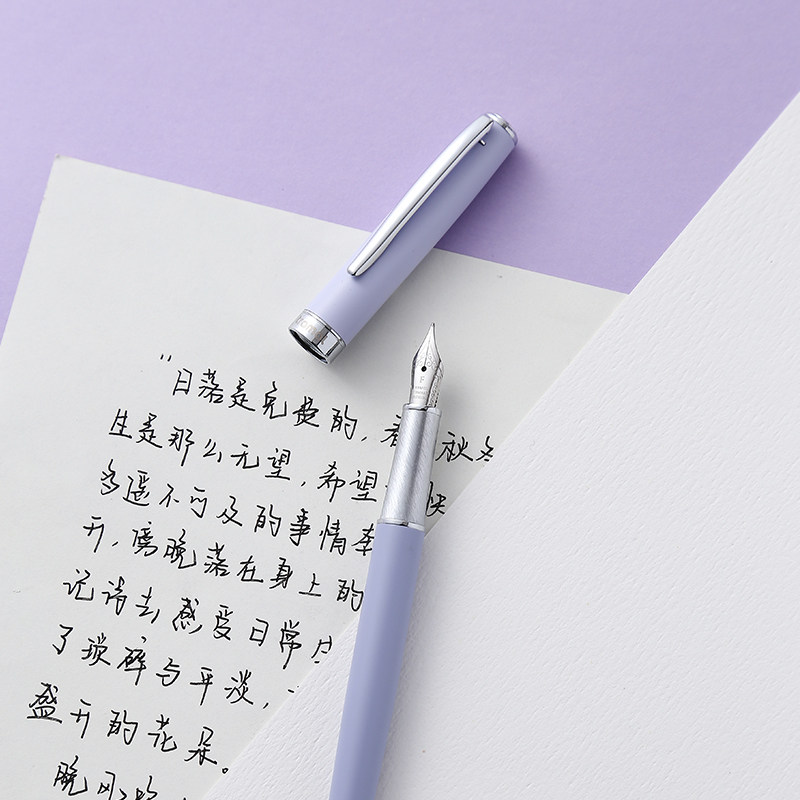 "日落是免费的，春 秋冬
生是那么无望，希望 快
多遥不可及的事情
开，傍晚落在身上的
记诗去感受日常
了琐碎与平淡，
盛开的花朵。
晚风
F